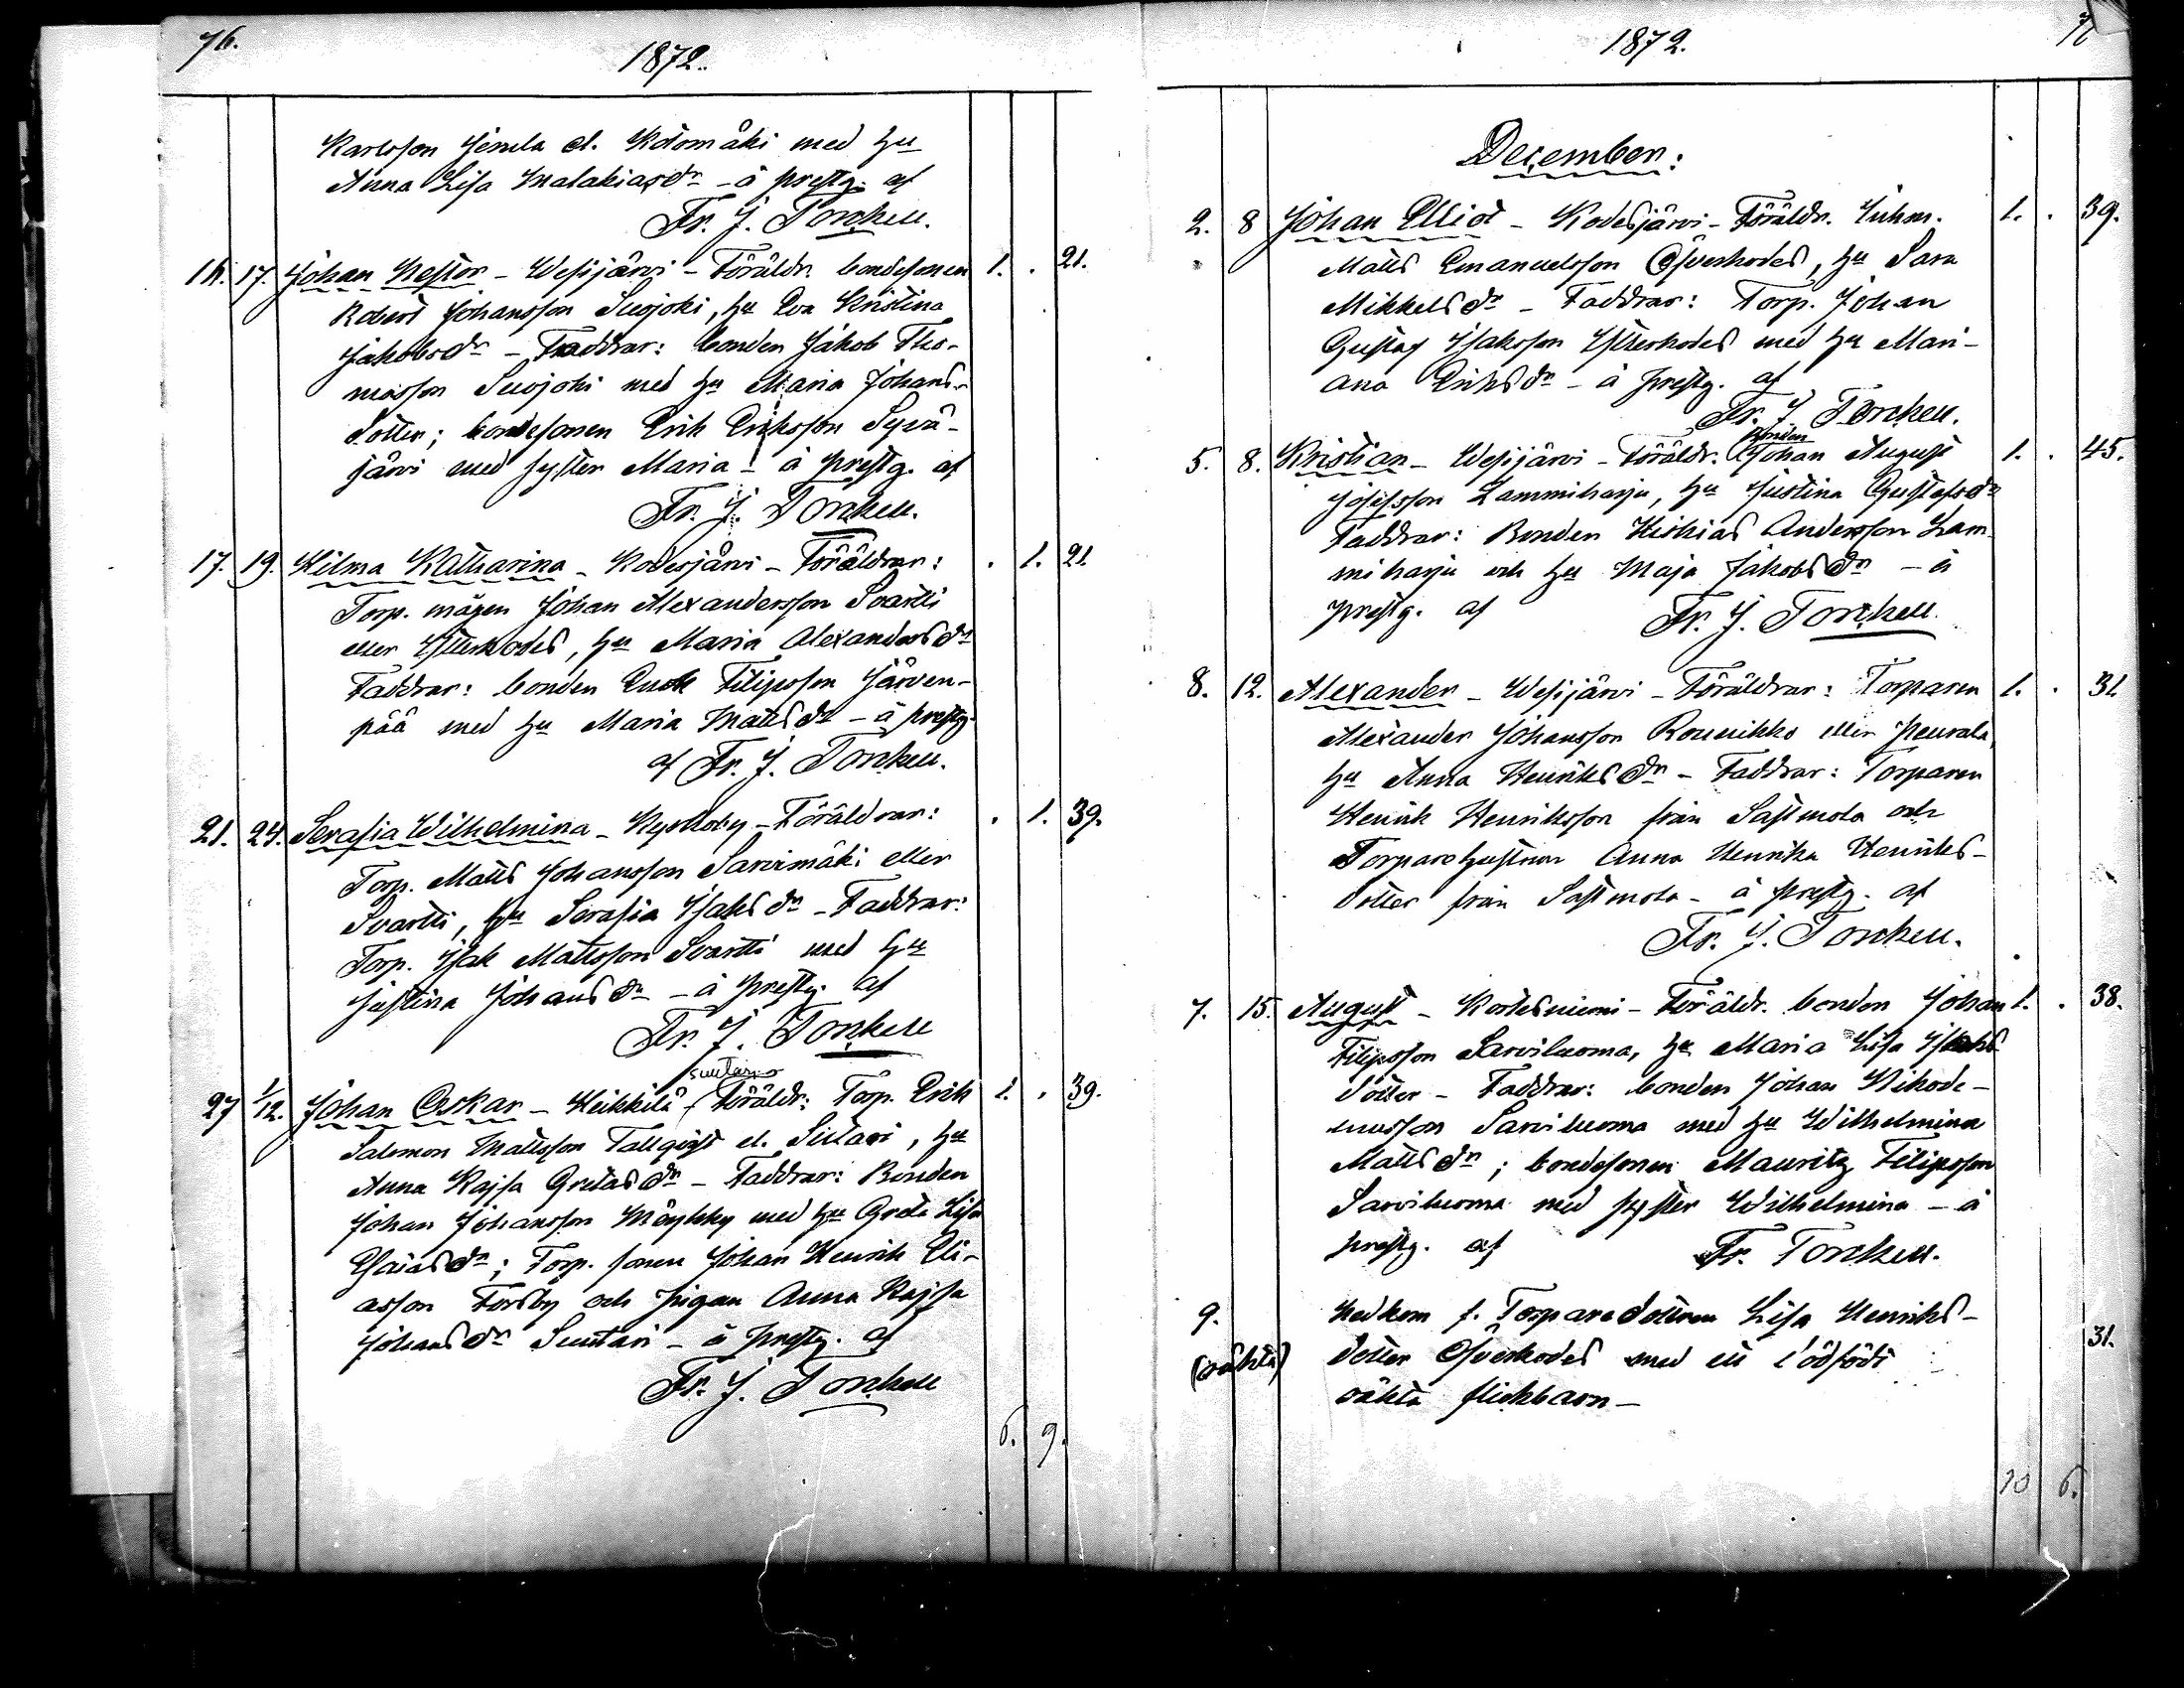 76.
1872.
Karlsson Jemela el. Kotomäki med hu
Anna Lisa Malakiasdr - å prestg. af
Fr. J. Torckell.
16. 17. Johan Nestor - Wesijärvi - Föräldr. bondesonen 1. . 21.
Robert Johansson Suojoki, hu Eva Kristina
Jakobsdr - Faddrar: bonden Jakob Tho-
masson Suojoki med hu Maria Johans-
dotter; bondesonen Erik Eriksson Syvä-
järvi med syster Maria - å prestg. af
Fr. J. Torckell.
17. 19. Hilma Katharina - Kodesjärvi - Föräldrar: . 1. 21
Torp. mågen Johan Alexandersson Svartti
eller Ytterkodes, hu Maria Alexandersdr
Faddrar: bonden Enok Filipsson Järven-
pää med hu Maria Mattsdr - å prestg.
af Fr. J. Torckell.
21. 24. Serafia Wilhelmina - Kyrkoby - Föräldrar: . 1. 39.
Torp. Matts Johansson Sarvimäki eller
Svartti, hu Serafia Isaksdr - Faddrar:
Torp. Isak Mattsson Svartti med hu
Justina Johansdr - å prestg. af
Fr. J. Torckell
suutari
27 1/12. Johan Oskar - Heikkilä - Föräldr: Torp. Erik 1. . 39.
Salomon Mattsson Tallqvist el. Suutari, hu
Anna Kajsa Gretasdr - Faddrar: Bonden
Johan Johansson Möykky med hu Greta Lisa
Esaiasdr; Torp. sonen Johan Henrik Eli-
asson Forsby och pigan Anna Kajsa
Johansdr Suutari - å prestg. af
Fr. J. Torckell
6. 9.
1872.
December:
2. 8 Johan Elliot - Kodesjärvi - Föräldr. Inhm. 1. . 39.
Matts Emanuelsson Öfverkodes, hu Sara
Mikkelsdr - Faddrar: Torp. Johan
Gustaf Isaksson Ytterkodes med hu Mari-
ana Eriksdr - å prestg. af
Fr. J. Torckell.
bonden
5. 8. Kristian - Wesijärvi - Föräldr. Johan August 1. . 45.
Josefsson Lammiharju, hu Justina Gustafsdr
Faddrar: Bonden Hiskias Andersson Lam-
miharju och hu Maja Jakobsdr - å
prestg. af Fr. J. Torckell.
8. 12. Alexander - Wesijärvi - Föräldrar: Torparen 1. . 31
Alexander Johansson Rounikko eller Peurala,
hu Anna Henriksdr - Faddrar: Torparen
Henrik Henriksson från Sastmola och
Torparehustrun Anna Henrika Henriks-
dotter från Sastmola - å prestg. af
Fr. J. Torckell.
7. 15. August - Kortesniemi - Föräldr. bonden Johan 1. . 38.
Filipsson Sarviluoma, hu Maria Lisa Isaks
dotter - Faddrar: bonden Johan Nikode-
musson Sarviluoma med hu Wilhelmina
Mattsdr; bondesonen Mauritz Filipsson
Sarviluoma med syster Wilhelmina - å
prestg. af Fr. Torckell.
9. Nedkom f. Torparedottren Lisa Henriks-
(oäkta) dotter Öfverkodes med ett dödfödt 31.
oäkta flickbarn -
10 6.